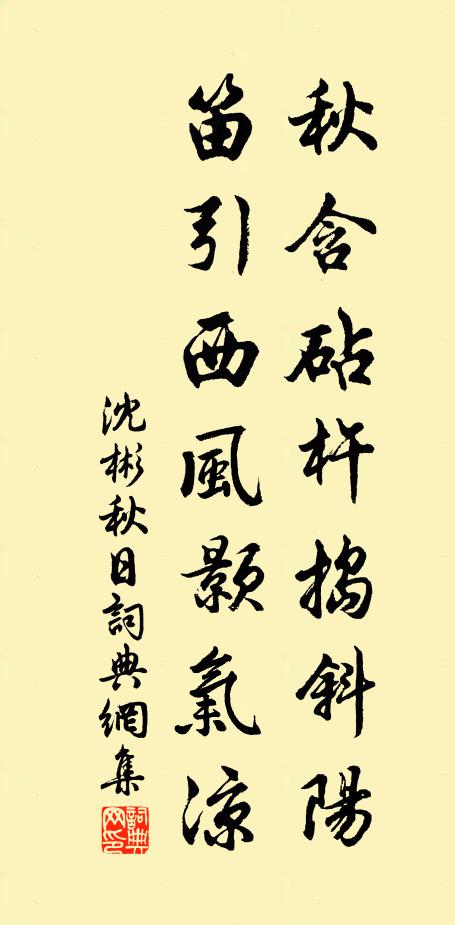 秋含砧杵搗斜陽
笛引西風顥氣涼
沈彬秋日詞典網集
詞典網印